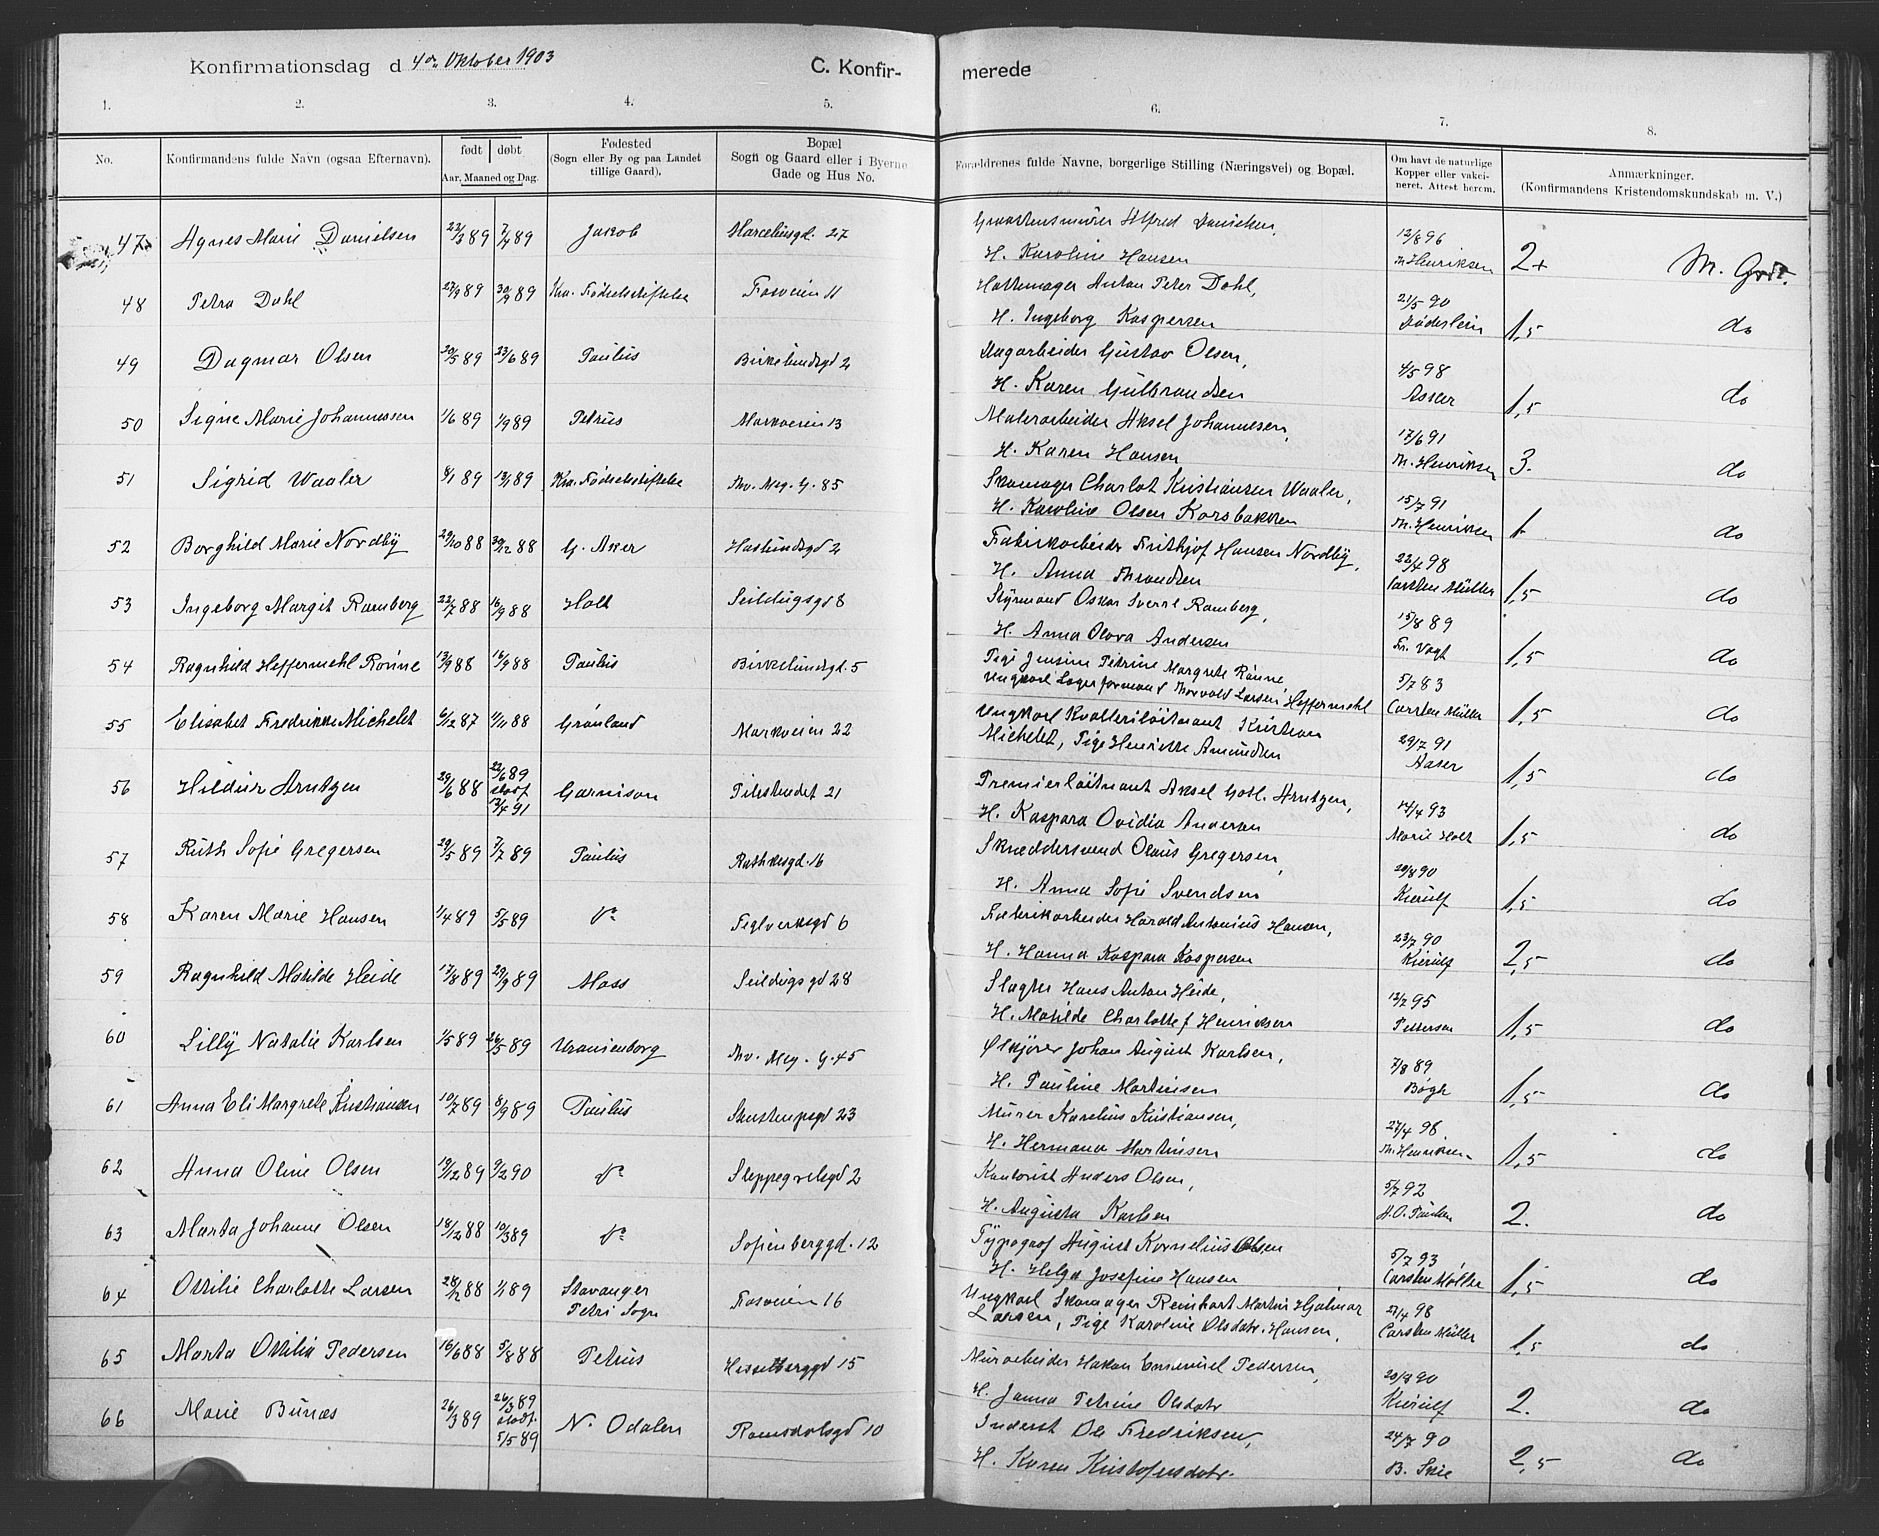 Konfirmationsdag d 4de Oktober 1903
C. Konfir-
merede
1. 2. 3. 4. 5. 6. 7. 8.
No.
Konfirmandens fulde Navn (ogsaa Efternavn).
født døbt
Aar, Maaned og Dag.
Fødested
(Sogn eller By og paa Landet
tillige Gaard).
Bopæl
Sogn og Gaard eller i Byerne
Gade og Hus No.
Forældrenes fulde Navne, borgerlige Stilling (Næringsvei) og Bopæl.
Om havt de naturlige
Kopper eller vakci-
neret. Attest herom.
Anmærkninger.
(Konfirmandens Kristendomskundskab m. V.)
47 Agnes Marie Danielsen 22/3 89 7/4 89 Jakob Marcelliusgd. 27
Alfred Danielsen, 12/8 96
H. Karoline Hansen M. Henriksen 2+ M. Gr
48 Petra Dahl 27/9 89 30/9 89 Kra. Fødselsstiftelse Fosveien 11
Hattemager Anton Peter Dahl, 21/5 90
H. Ingeborg Kaspersen Døderlein 1,5 do
49 Dagmar Olsen 20/5 89 23/6 89 Paulus Birkelundsgd 2
Dagarbeider Gustav Olsen, 4/5 98
H. Karen Gulbrandsen Asker 1,5 do
50 Signe Marie Johannessen 1/6 89 1/9 89 Petrus Markveien 13
Malerarbeider Aksel Johannesen, 17/6 91
H. Karen Hansen M. Henriksen 3. do
51 Sigrid Waaler 8/1 89 13/1 89 Kra. Fødselsstiftelse Thv. Mey. G. 85
Skomager Charlot Kristiansen Waaler, 15/7 91
H. Karoline Olsen Korsbakken M. Henriksen 1 do
52 Borghild Marie Nordby 29/10 88 30/12 88 G. Aker Haslundsgd 2
Fabrikarbeider Frithjof Hansen Nordby, 22/4 98
H. Anna Throndsen Carsten Müller 1,5 do
53 Ingeborg Margit Ramberg 22/7 88 16/9 88 Holt Seildugsgd 8
Styrmand Oskar Sverre Ramberg, 15/8 89
H. Anna Olova Andersen Fr. Vogt 1,5 do
54 Ragnhild Heffermehl Rønne 13/9 88 16/9 88 Paulus Birkelundsgd. 5
Pige Jensine Petrine Margrete Rønne 5/7 83
Ungkarl Lagerformand Thorvald Larsen Heffermehl Carsten Müller 1,5 do
55 Elisabet Fredrikke Michelet 6/12 87 1/11 88 Grønland Markveien 22
Ungkarl Kvallerilöitnant Kristian 29/7 91
Michelet, Pige Henriette Amundsen Aaser 1,5 do
56 Hildur Arntzen 29/6 88 22/6 89 stadf. 12/4 91 Garnison Pilestrædet 21
Premierlöitnant Aksel Gotl. Arntzen, 14/4 93
H. Kaspara Ovidia Andersen Marie Holt 1,5 do
57 Ruth Sofie Gregersen 29/5 89 7/7 89 Paulus Rathkesgd. 16
Skræddersvend Olaus Gregersen, 20/8 90
H. Anna Sofie Svendsen Kierulf 1,5 do
58 Karen Marie Hansen 1/4 89 5/5 89 Do Teglverksgd 6
Fabrikarbeider Harald Antonius Hansen, 23/7 90
H. Hanna Kaspara Kaspersen Kierulf 2,5 do
59 Ragnhild Matilde Heide 17/8 89 29/9 89 Moss Seildugsgd 28
Slagter Hans Anton Heide, 12/7 95
H. Matilde Charlotte f. Henriksen Pettersen 1,5 do
60 Lilly Natalie Karlsen 1/5 89 26/5 89 Uranienborg Thv. Mey. G. 45
Ølkjører Johan August Karlsen, 7/8 89
H. Pauline Martinsen Bøgh 1,5 do
61 Anna Eli Margrete Kristiansen 10/7 89 8/9 89 Paulus Sarstengsgd 23
Murer Karelius Kristiansen, 27/4 98
H. Hermana Martinsen M. Henriksen 1,5 do
62 Anna Oline Olsen 19/12 89 9/2 90 Do Steppegrelsgd 2
Kontorist Anders Olsen, 5/7 92
H. Augusta Karlsen H.O. Paulsen 2. do
63 Marta Johanne Olsen 18/12 88 10/3 89 Do Sofienberggd. 12
Typograf August Kornelius Olsen 5/7 93
H. Helga Josefine Hansen Carsten Møller 1,5 do
64 Ottilie Charlotte Larsen 28/12 88 1/1 89 Stavanger Petri Sogn Fosveien 16
Ungkarl Skomager Reinhart Martin Hjalmar 27/4 98
Larsen, Pige Karoline Olsdatr. Hansen, Carsten Müller 1,5 do
65 Marta Ottilia Pedersen 16/6 88 5/8 88 Petrus Hesselberggd 15
Murarbeider Hakon Emanuel Pedersen, 20/8 90
H. Janna Petrine Olsdatr Kierulf 2. do
66 Marie Bunæs 26/3 89 26/3 89 stadf. 5/5 89 N. Odalen Romsdalsgd 10
Inderst Ole Fredriksen, 24/7 90
H. Karen Kristofersdatr. B. Skie 2,5 do